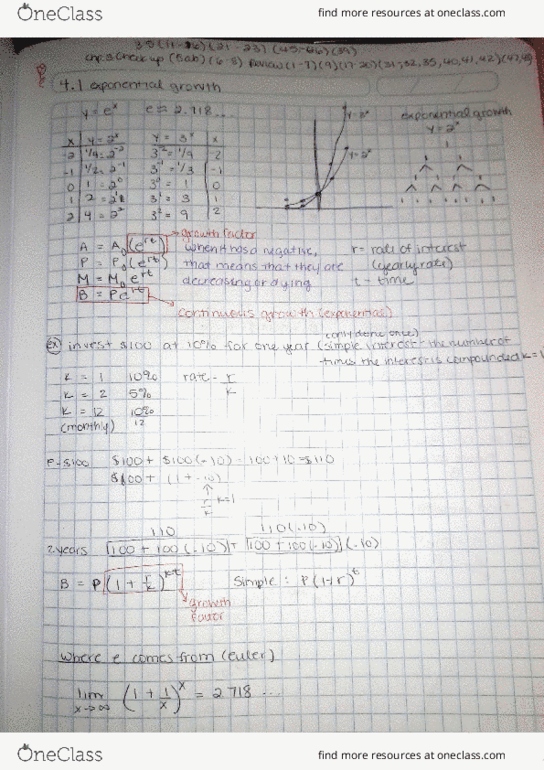 OneClass
find more resources at oneclass.com
3.5 (11-26) (21-23) (45-66) (39)
chp.3 check up (5ab) (6-8) Review (1-7) (9) (17-20) (31, 32, 35, 40, 41, 42) (47, 48)
4.1 exponential growth
y = e^x e ≈ 2.718...
y=3^x
exponential growth
y = 2^x
x y = 2^x y = 3^x x
-2 1/4 = 2^-2 3^-2 = 1/9 -2
-1 1/2 = 2^-1 3^-1 = 1/3 -1
0 1 = 2^0 3^0 = 1 0
1 2 = 2^1 3^1 = 3 1
2 4 = 2^2 3^2 = 9 2
y=2^x
growth factor
A = A₀(e^rt) when it has a negative, r = rate of interest
P = P₀(e^rt) that means that they are (yearly rate)
M = M₀e^rt decreasing or dying t - time
B = Pe^rt
continuous growth (exponential)
(only done once)
ex) invest $100 at 10% for one year (simple interest - the number of
times the interest is compounded k=1
k = 1 10% rate - r/k
k = 2 5%
k = 12 10%/12
(monthly)
P=$100 $100 + $100(.10) = 100+10 = $110
$100+ (1+.10)
r/k k=1
110 110(.10)
2 years [100 + 100(.10)]+ [100 + 100(.10)](.10)
B = P(1 + r/k)^kt Simple : P(1+r)^t
growth
factor
where e comes from (euler)
lim x→∞ (1 + 1/x)^x = 2.718 ...
OneClass
find more resources at oneclass.com